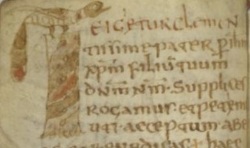 TEIGETUR Clemen
tissime pater per ihm
xpm filium tuum
dnm nm. Supplices
rogamus et petem
uti accepta habe